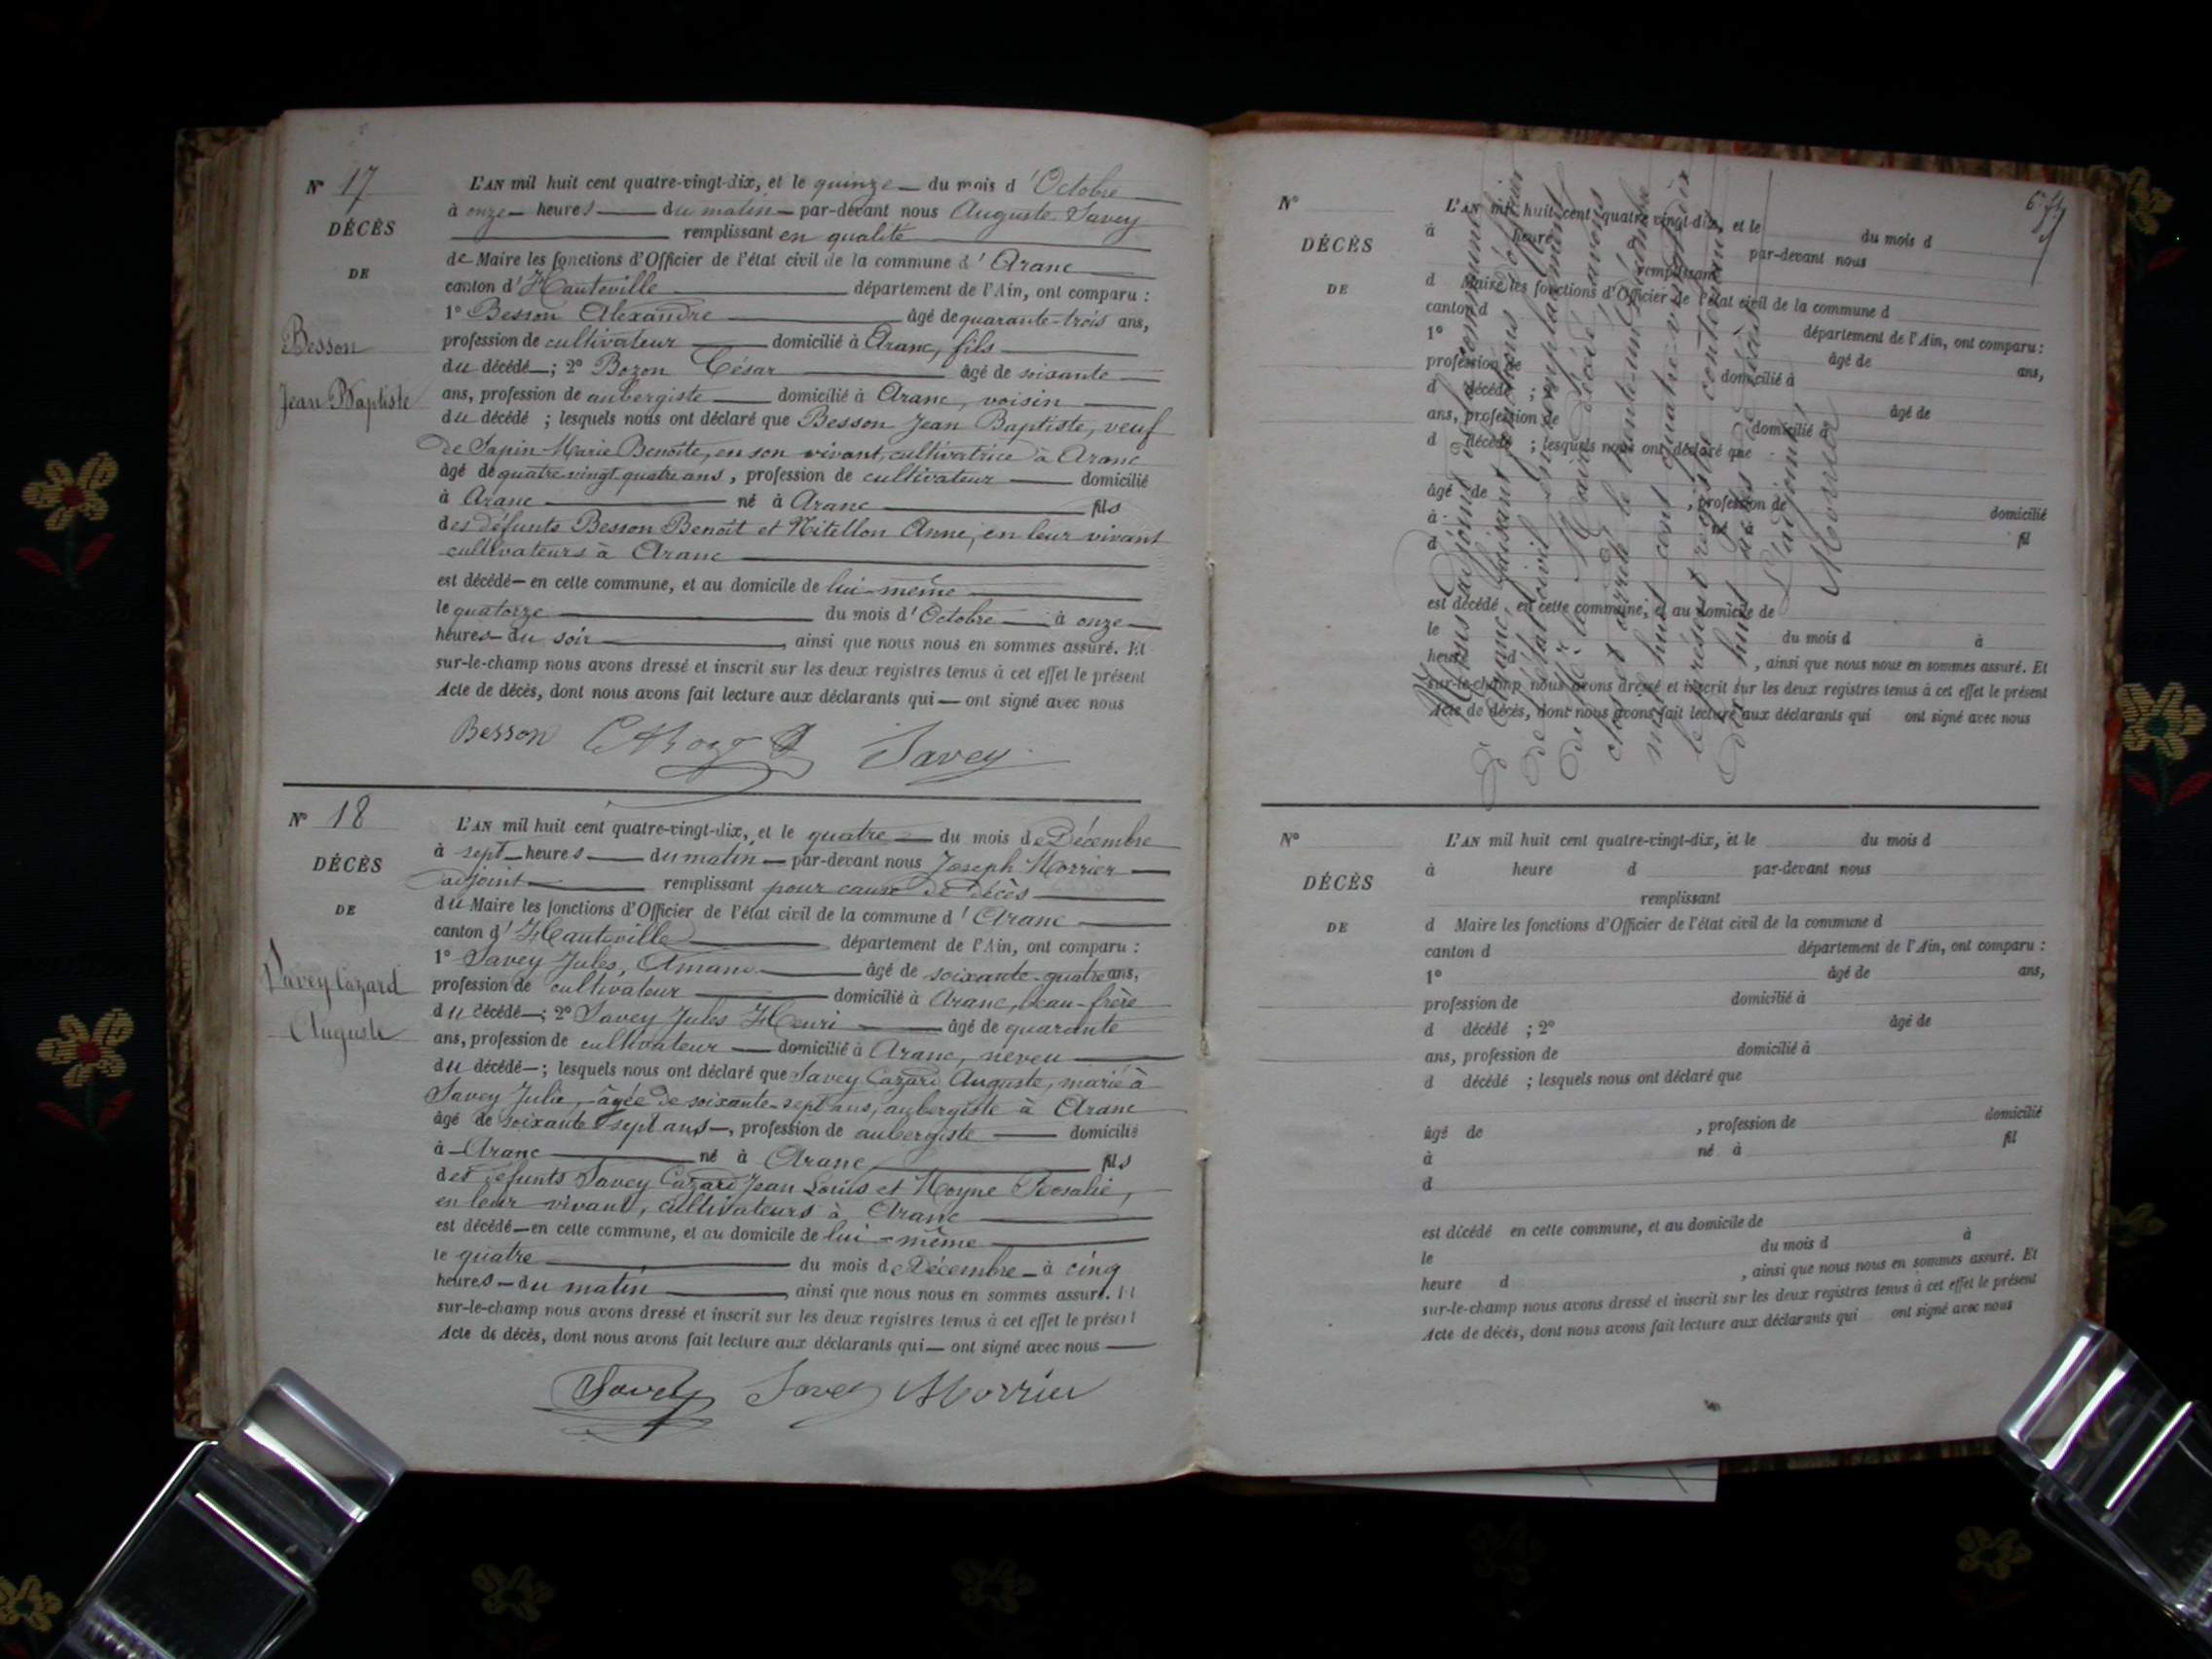 N° 17
DÉCÈS
DE
Besson
Jean Baptiste
L'AN mil huit cent quatre-vingt-dix, et le quinze du mois d'Octobre
à onze heures du matin par-devant nous Auguste Savey
remplissant en qualité
de Maire les fonctions d'Officier de l'état civil de la commune d'Aranc
canton d'Hauteville département de l'Ain, ont comparu :
1° Besson Alexandre âgé de quarante-trois ans,
profession de cultivateur domicilié à Aranc, fils
du décédé ; 2° Bozon César âgé de soixante
ans, profession de aubergiste domicilié à Aranc, voisin
du décédé ; lesquels nous ont déclaré que Besson Jean Baptiste, veuf
de Sapin Marie Benoîte, en son vivant, cultivatrice à Aranc
âgé de quatre vingt quatre ans, profession de cultivateur domicilié
à Aranc né à Aranc fils
des défunts Besson Benoît et Nitellon Anne, en leur vivant
cultivateurs à Aranc
est décédé en cette commune, et au domicile de lui-même
le quatorze du mois d'Octobre à onze
heures du soir, ainsi que nous nous en sommes assuré. Et
sur-le-champ nous avons dressé et inscrit sur les deux registres tenus à cet effet le présent
Acte de décès, dont nous avons fait lecture aux déclarants qui ont signé avec nous
Besson Savey
N° 18
DÉCÈS
DE
Savey Cazard
Auguste
L'AN mil huit cent quatre-vingt-dix, et le quatre du mois de Décembre
à sept heures du matin par-devant nous Joseph Morrier
adjoint remplissant pour cause de décès
du Maire les fonctions d'Officier de l'état civil de la commune d'Aranc
canton d'Hauteville département de l'Ain, ont comparu :
1° Savey Jules, Amand âgé de soixante-quatre ans,
profession de cultivateur domicilié à Aranc, beau-frère
du décédé ; 2° Savey Jules Henri âgé de quarante
ans, profession de cultivateur domicilié à Aranc, neveu
du décédé ; lesquels nous ont déclaré que Savey Cazard Auguste, marié à
Savey Julie, âgée de soixante-sept ans, aubergiste à Aranc
âgé de soixante sept ans, profession de aubergiste domicilié
à Aranc né à Aranc fils
des défunts Savey Cazard Jean Louis et Moyne Rosalie,
en leur vivant, cultivateurs à Aranc
est décédé en cette commune, et au domicile de lui-même
le quatre du mois de Décembre à cinq
heures du matin, ainsi que nous nous en sommes assuré. Et
sur-le-champ nous avons dressé et inscrit sur les deux registres tenus à cet effet le présent
Acte de décès, dont nous avons fait lecture aux déclarants qui ont signé avec nous
Savey Savey Morrier
N°
DÉCÈS
DE
L'AN mil huit cent quatre vingt-dix, et le du mois d
à heure par-devant nous
remplissant
d Maire les fonctions d'Officier de l'état civil de la commune d
canton d département de l'Ain, ont comparu :
1° âgé de ans,
profession de domicilié à
d décédé ; âgé de
ans, profession de domicilié à
d décédé ; lesquels nous ont déclaré que
âgé de , profession de domicilié
à né à fil
d
est décédé en cette commune, et au domicile de
le du mois d à
heure d , ainsi que nous nous en sommes assuré. Et
sur-le-champ nous avons dressé et inscrit sur les deux registres tenus à cet effet le présent
Acte de décès, dont nous avons fait lecture aux déclarants qui ont signé avec nous
Nous adjoint de la commune
d'Aranc, faisant fonctions d'officier
de l'état civil en remplacement
de Mr le Maire décédé, avons
clos et arrêté le trente-un Décembre
mil huit cent quatre-vingt-dix
le présent registre contenant
dix huit actes de décès
L'adjoint
Morrier
N°
DÉCÈS
DE
L'AN mil huit cent quatre-vingt-dix, et le du mois d
à heure d par-devant nous
remplissant
d Maire les fonctions d'Officier de l'état civil de la commune d
canton d département de l'Ain, ont comparu :
1° âgé de ans,
profession de domicilié à
d décédé ; 2° âgé de
ans, profession de domicilié à
d décédé ; lesquels nous ont déclaré que
âgé de , profession de domicilié
à né à fil
d
est décédé en cette commune, et au domicile de
le du mois d à
heure d , ainsi que nous nous en sommes assuré. Et
sur-le-champ nous avons dressé et inscrit sur les deux registres tenus à cet effet le présent
Acte de décès, dont nous avons fait lecture aux déclarants qui ont signé avec nous